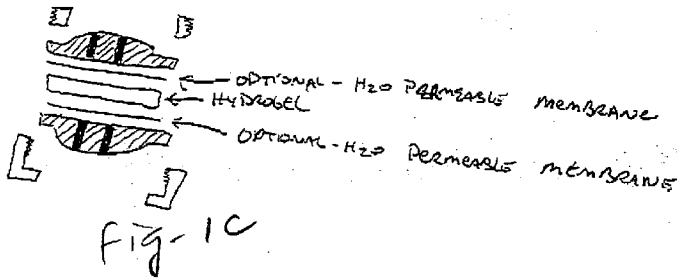 OPTIONAL - H2O PERMEABLE MEMBRANE
HYDROGEL
OPTIONAL - H2O PERMEABLE MEMBRANE
Fig-1C